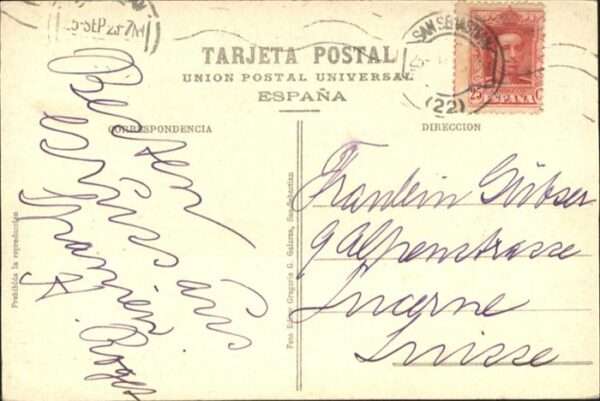 5-SEP 23-7M
SAN SEBASTIAN
(22)
25 C
ESPAÑA
TARJETA POSTAL
UNION POSTAL UNIVERSAL
ESPAÑA
CORRESPONDENCIA
DIRECCION
Besten
Gruss aus
Roger
Fräulein Gübser
9 Alpenstrasse
Lucerne
Suisse
Prohibida la reproducción
Foto Edit. Gregorio G. Galarza, San Sebastian